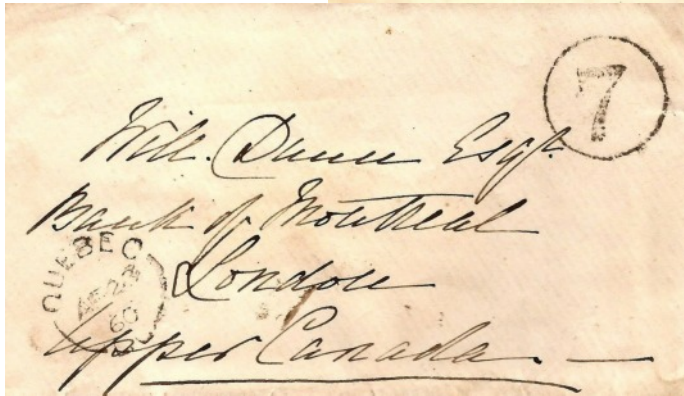 7
Will. Dunn Esqr.
Bank of Montreal
London
Upper Canada. —
QUEBEC
60